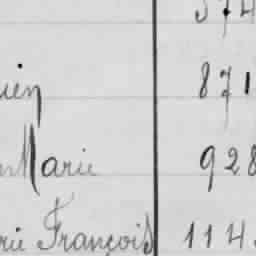 574
uien 871
Marie 928
rie François 114